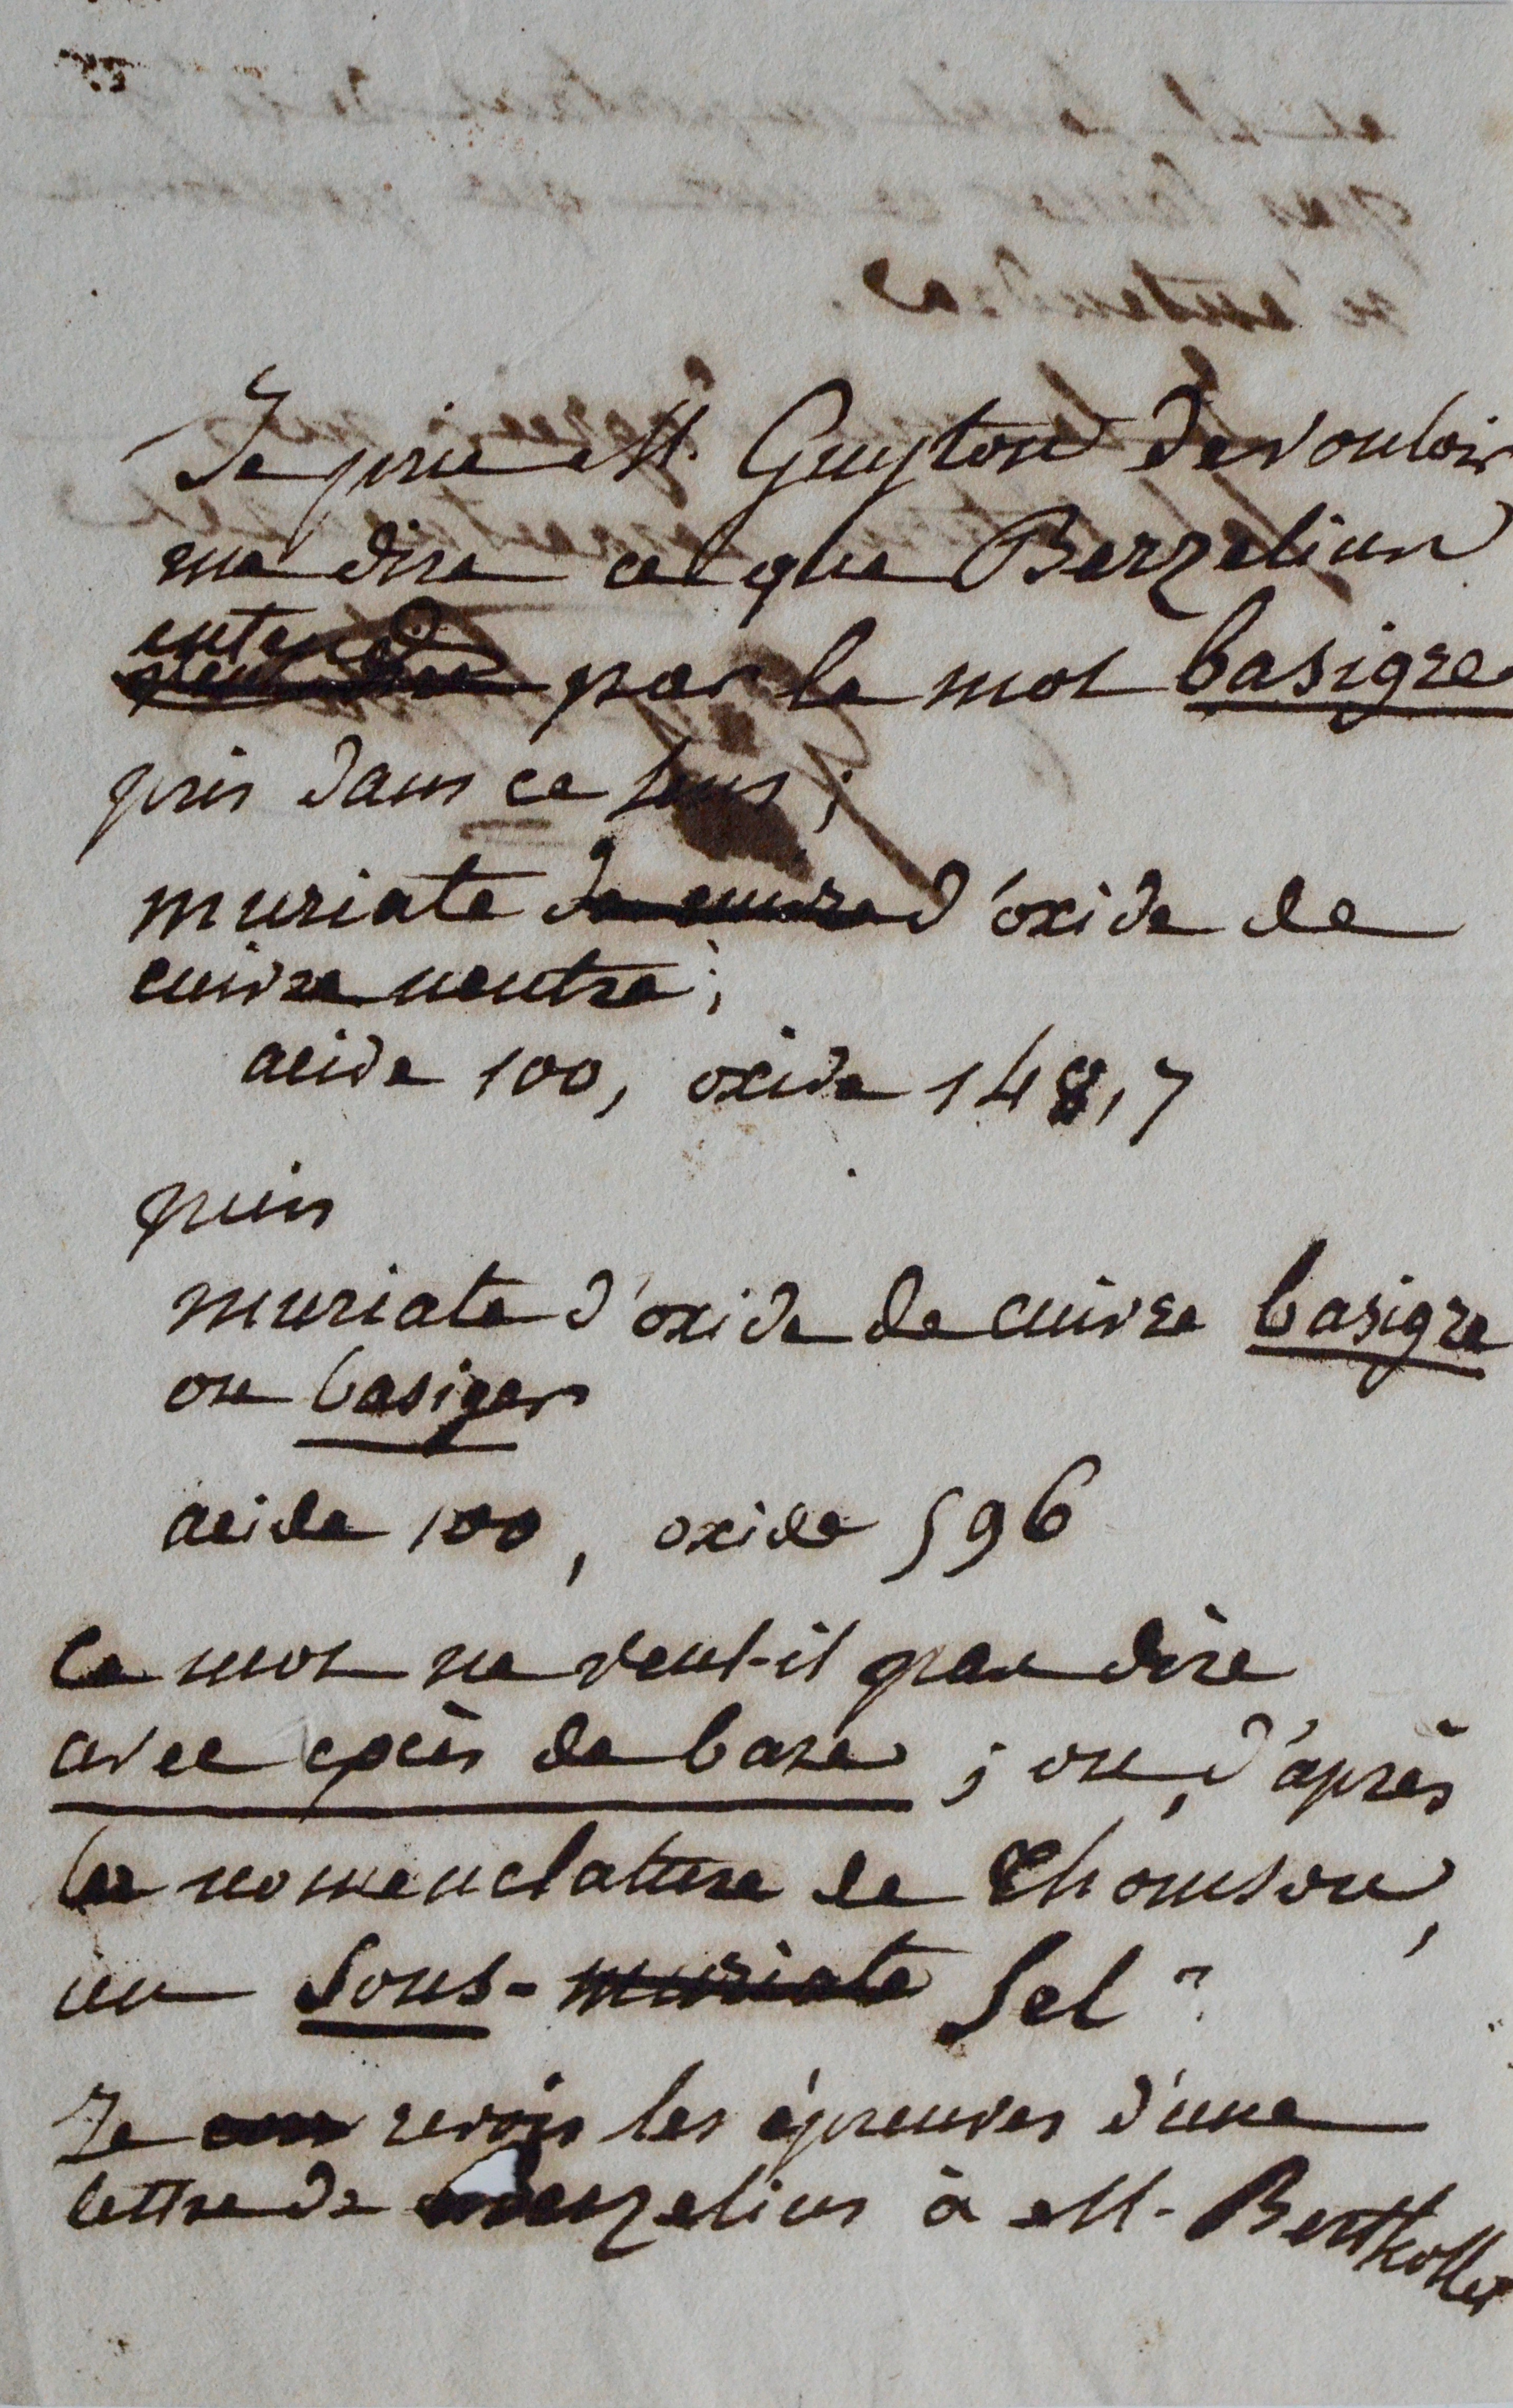 Je prie M. Guyton de vouloir
me dire ce que Berzelius
entend
veut dire par le mot basigre
pris dans ce sens ;
muriate de cuivre d'oxide de
cuivre neutre ;
acide 100, oxide 148,7
puis
muriate d'oxide de cuivre basigre
ou basiger
acide 100, oxide 596
Ce mot ne veut-il pas dire
avec excès de base ; ou, d'après
la nomenclature de Thomson,
un sous-muriate sel ?
Je revois les épreuves d'une
lettre de Berzelius à M. Berthollet